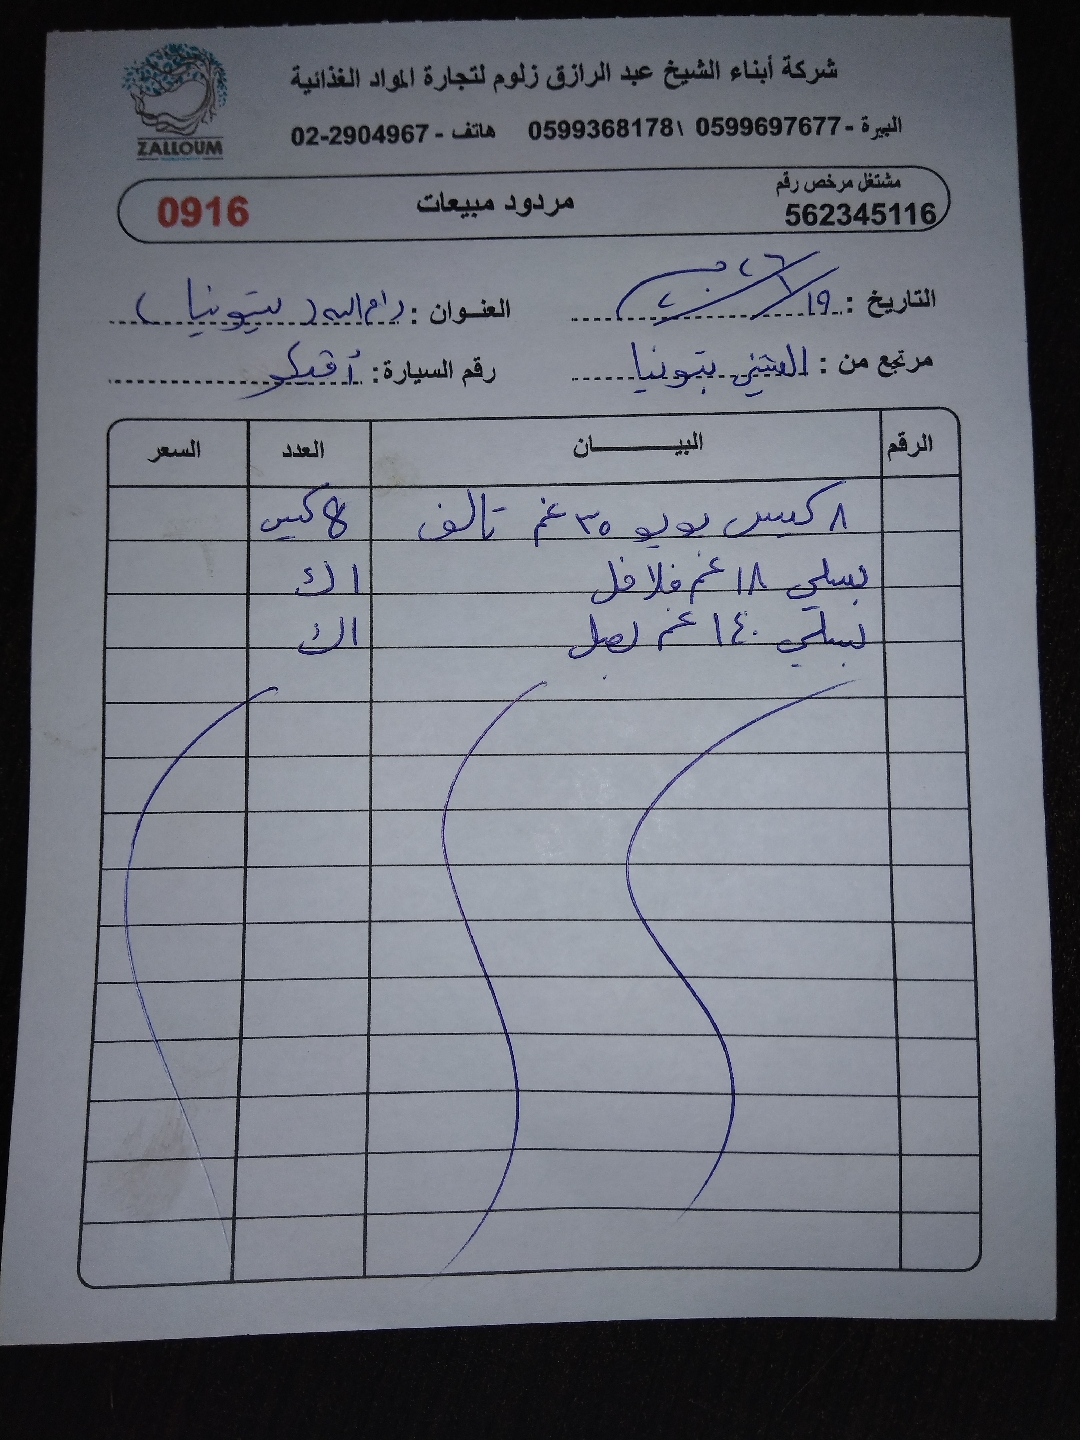 شركة أبناء الشيخ عبد الرازق زلوم لتجارة المواد الغذائية
البيرة - 0599697677 \ 0599368178 هاتف - 02-2904967
ZALLOUM
مشتغل مرخص رقم
562345116
مردود مبيعات
0916
التاريخ : ١٩/
العنوان : رام الله ( بيتونيا )
مرتجع من : بيتونيا
رقم السيارة :
الرقم البيـــــان العدد السعر
٨ كيس يويو ٣٥ غم تالف 8 كيس
بسلي ١٨ غم فلافل ١ ك
بسلي ١٤٠ غم بصل ١ ك